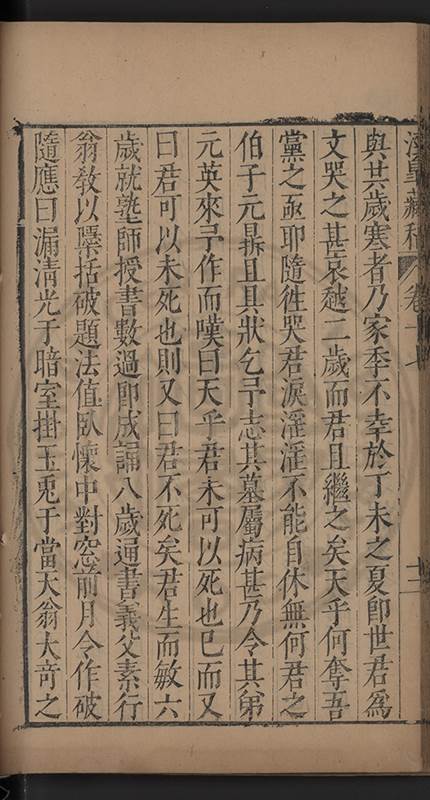 涇皋藏稿 卷十七 十二
與共歲寒者乃家季不幸於丁未之夏卽世君爲
文哭之甚哀越二歲而君且繼之矣天乎何奪吾
黨之亟耶隨徃哭君淚淫淫不能自休無何君之
伯子元㬥且具狀乞予志其墓屬病甚乃令其弟
元英來予作而嘆曰天乎君未可以死也巳而又
曰君可以未死也則又曰君不死矣君生而敏六
歲就塾師授書數過卽成誦八歲通書義父素行
翁敎以櫽括破題法值臥懷中對窓前月令作破
隨應曰漏清光于暗室掛玉兎于當天翁大竒之